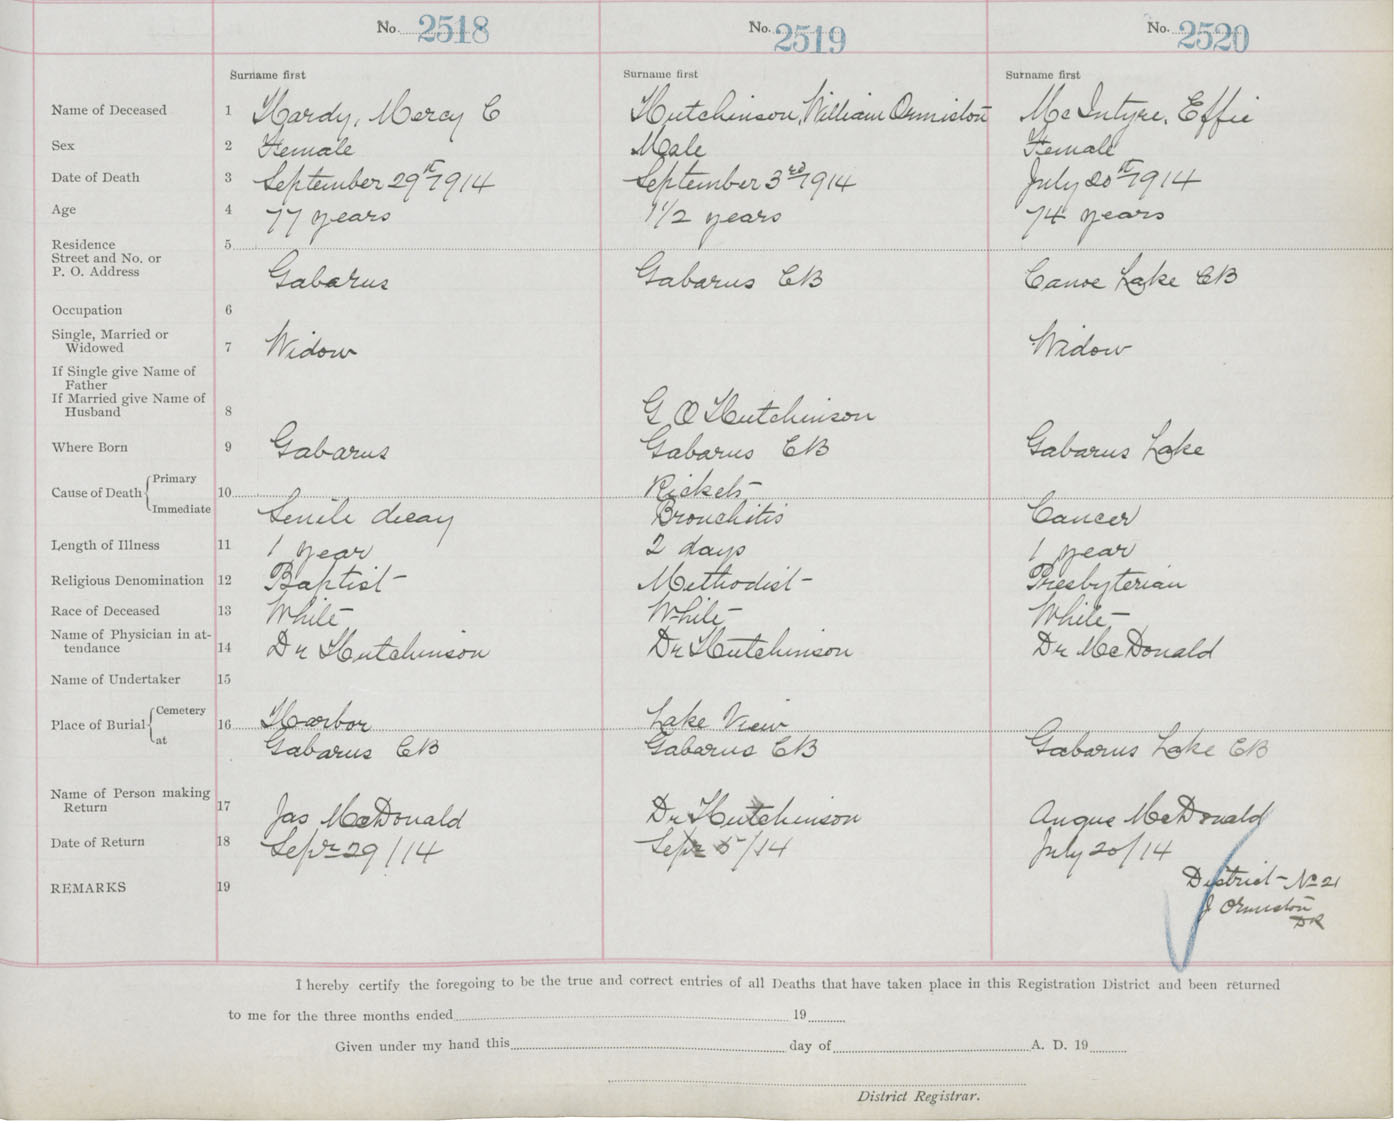 No. 2518 No. 2519 No. 2520
Surname first Surname first Surname first
Name of Deceased 1 Hardy, Mercy C Hutchinson, William Ormiston McIntyre, Effie
Sex 2 Female Male Female
Date of Death 3 September 29th 1914 September 3rd 1914 July 20th 1914
Age 4 77 years 1 1/2 years 74 years
Residence 5
Street and No. or
P. O. Address Gabarus Gabarus CB Canoe Lake CB
Occupation 6
Single, Married or
Widowed 7 Widow Widow
If Single give Name of
Father
If Married give Name of
Husband 8 G O Hutchinson
Where Born 9 Gabarus Gabarus CB Gabarus Lake
Cause of Death Primary 10 Rickets
Immediate Senile decay Bronchitis Cancer
Length of Illness 11 1 year 2 days 1 year
Religious Denomination 12 Baptist Methodist Presbyterian
Race of Deceased 13 White White White
Name of Physician in at-
tendance 14 Dr Hutchinson Dr Hutchinson Dr McDonald
Name of Undertaker 15
Place of Burial Cemetery 16 Harbor Lake View
at Gabarus CB Gabarus CB Gabarus Lake CB
Name of Person making
Return 17 Jas McDonald Dr Hutchinson Angus McDonald
Date of Return 18 Sepr 29/14 Sepr 5/14 July 20/14
REMARKS 19 District No 21
J Ormiston
DR
I hereby certify the foregoing to be the true and correct entries of all Deaths that have taken place in this Registration District and been returned
to me for the three months ended 19
Given under my hand this day of A. D. 19
District Registrar.